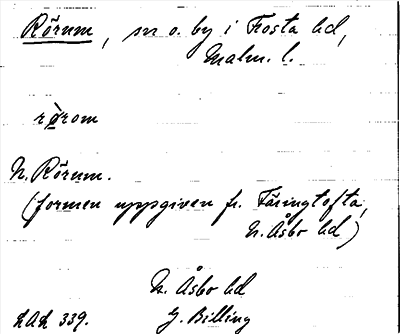 Rörum, sn o. by i Frosta hd,
Malm. l.
rọ̀rom
N. Rörum.
(formen uppgiven fr. Färingtofta,
N. Åsbo hd)
N. Åsbo hd
LAL 339. G. Billing